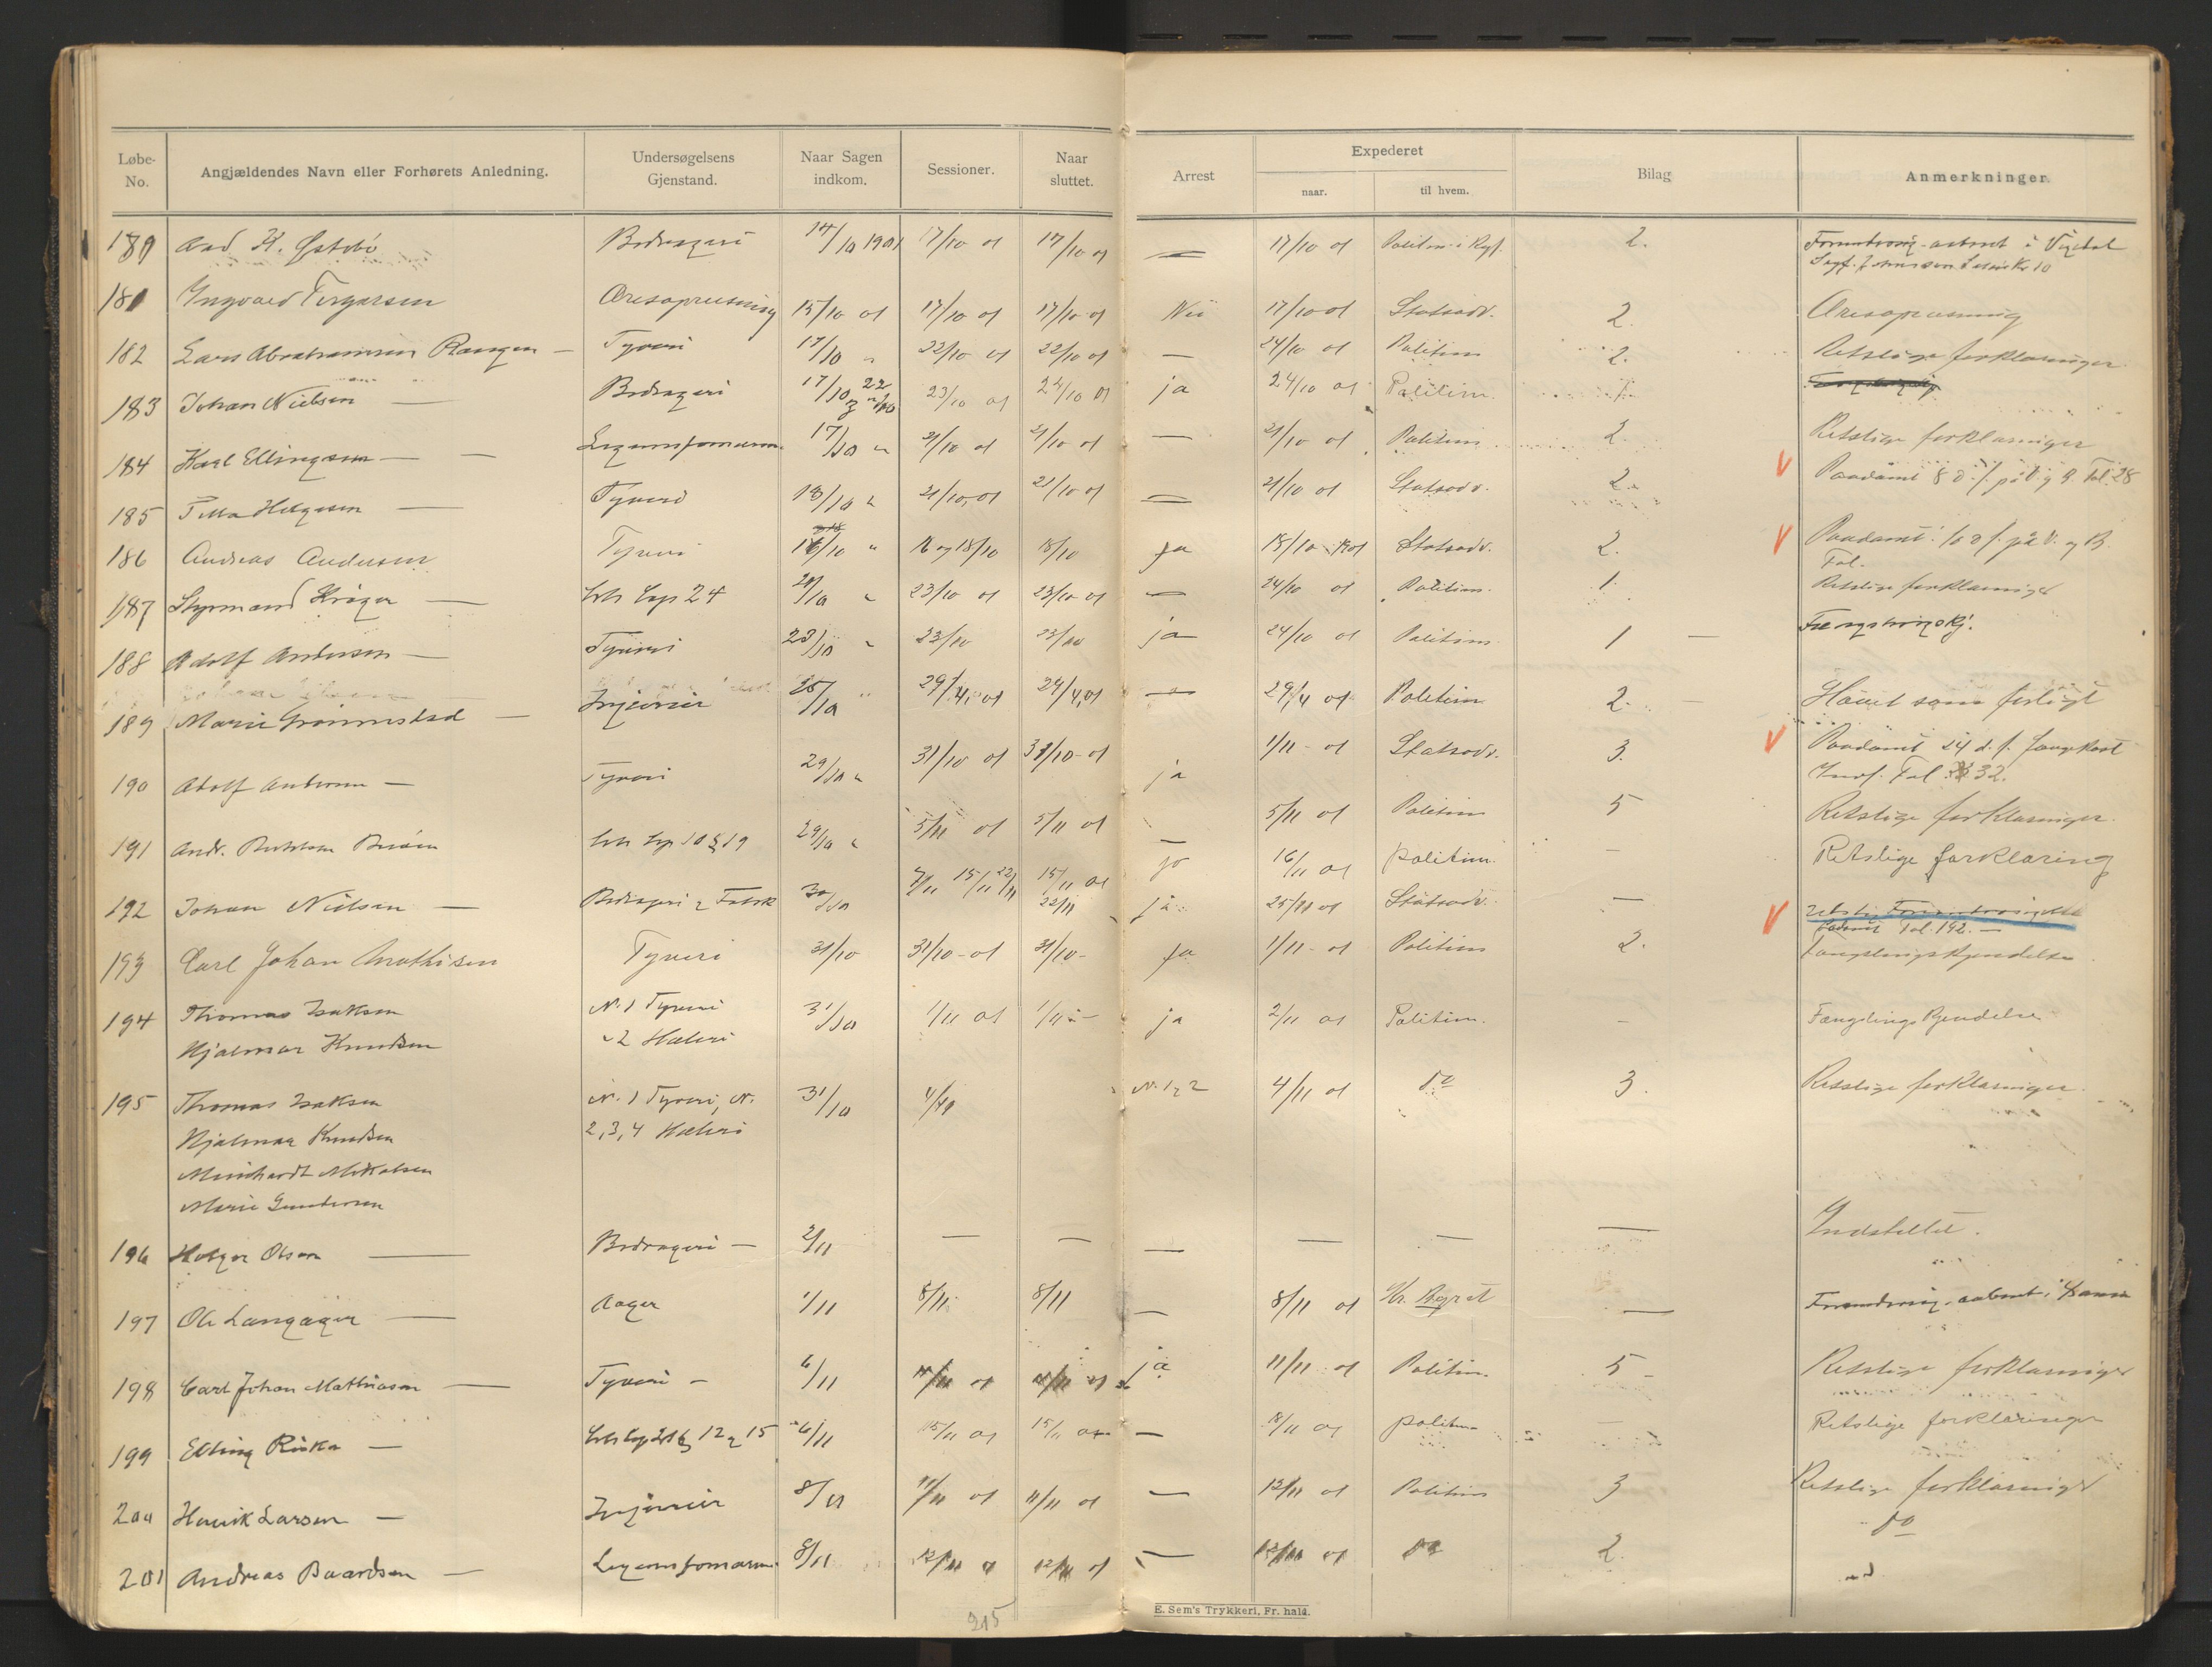 Løbe-No. Angjældendes Navn eller Forhørets Anledning. Undersøgelsens Gjenstand. Naar Sagen indkom. Sessioner. Naar sluttet. Arrest Expederet naar. til hvem. Bilag Anmerkninger.
180 Aad. K. Østebø Bedrageri 17/10 1901 17/10 01 17/10 01 — 17/10 01 2.
181 Ingvald Torgersen Æresopreisning 15/10 01 17/10 01 17/10 01 Nei 17/10 01 Statsadv. 2. Æresopreisning
182 Lars Abrahamsen — Tyveri 17/10 " 22/10 01 22/10 01 — 24/10 01 Politim 2. Retslige forklaringer
183 Johan Nielsen — Bedrageri 17/10 22/10 23/10 01 24/10 01 ja 24/10 01 Politim.
184 Karl Ellingsen — — 17/10 " 21/10 01 21/10 01 — 21/10 01 Politim 2. Retslige forklaringer
185 Helgesen — Tyveri 18/10 " 21/10 01 21/10 01 — 21/10 01 Statsadv. 2. Paadømt 8 d. f. på V. og B. Fol. 28
186 Andreas Andersen Tyveri 16/10 " 16 og 18/10 18/10 ja 18/10 01 Statsadv. 2. Paadømt: 10 d f. på V. og B. Fol.
187 Styrmand Krøger — 24 " 23/10 01 23/10 01 — 24/10 01 Politim. 1. Retslige forklaringer
188 Adolf Andersen — Tyveri 23/10 " 23/10 23/10 ja 24/10 01 Politim. 1 — Fængslingskj.
189 Marie Grønnestad — Injurier " — Politim 2. Hævet som forligt
190 Adolf Andersen — Tyveri 29/10 " 31/10 01 31/10 01 ja 1/11 01 Statsadv. 3. Paadømt 24 d. f. fangekost Fol. 32.
191 Andr. 29/10 " 5/11 01 5/11 01 — 5/11 01 Politim 5 Retslige forklaringer.
192 Johan Nielsen — Bedrageri & Falsk 30/10 7/11 15/11 22/11 15/11 01 22/11 jo 16/11 01 politim. — Retslige forklaring
ja 25/11 01 Statsadv. — Fol. 192. —
193 Carl Johan Mathisen Tyveri 31/10 31/10 01 31/10 - ja 1/11 01 Politim 2. Fængslingskjendelse
194 Thomas Isaksen N. 1 Tyveri 31/10 1/11 01 1/11 - ja 2/11 01 Politim. — Fængslings Kjendelse
Hjalmar Knudsen " 2 Hæleri
195 Thomas Isaksen N. 1 Tyveri, N. 31/10 4/11 N. 1, 2 4/11 01 do 3. Retslige forklaringer.
Hjalmar Knudsen 2, 3, 4 Hæleri
Meinhardt Mikalsen
Marie Gundersen
196 Holger Olsen — Bedrageri — 2/11 — — — — — — Indstillet.
197 Ole Langager — Aager 1/11 8/11 8/11 — 8/11 01 —
198 Carl Johan Mathiasen — Tyveri — 6/11 ja 11/11 01 Politim. 5 — Retslige forklaringer
199 Elling Riska — 12 & 15 6/11 15/11 01 15/11 01 — 18/11 01 politim — Retslige forklaringer
200 Henrik Larsen — Injurier 8/11 11/11 01 11/11 01 — 12/11 01 Politim 3 Retslige forklaringer
201 Andreas Baardsen — 8/11 12/11 01 12/11 01 — 01 do 2. do
215
E. Sem's Trykkeri, Fr. hald.